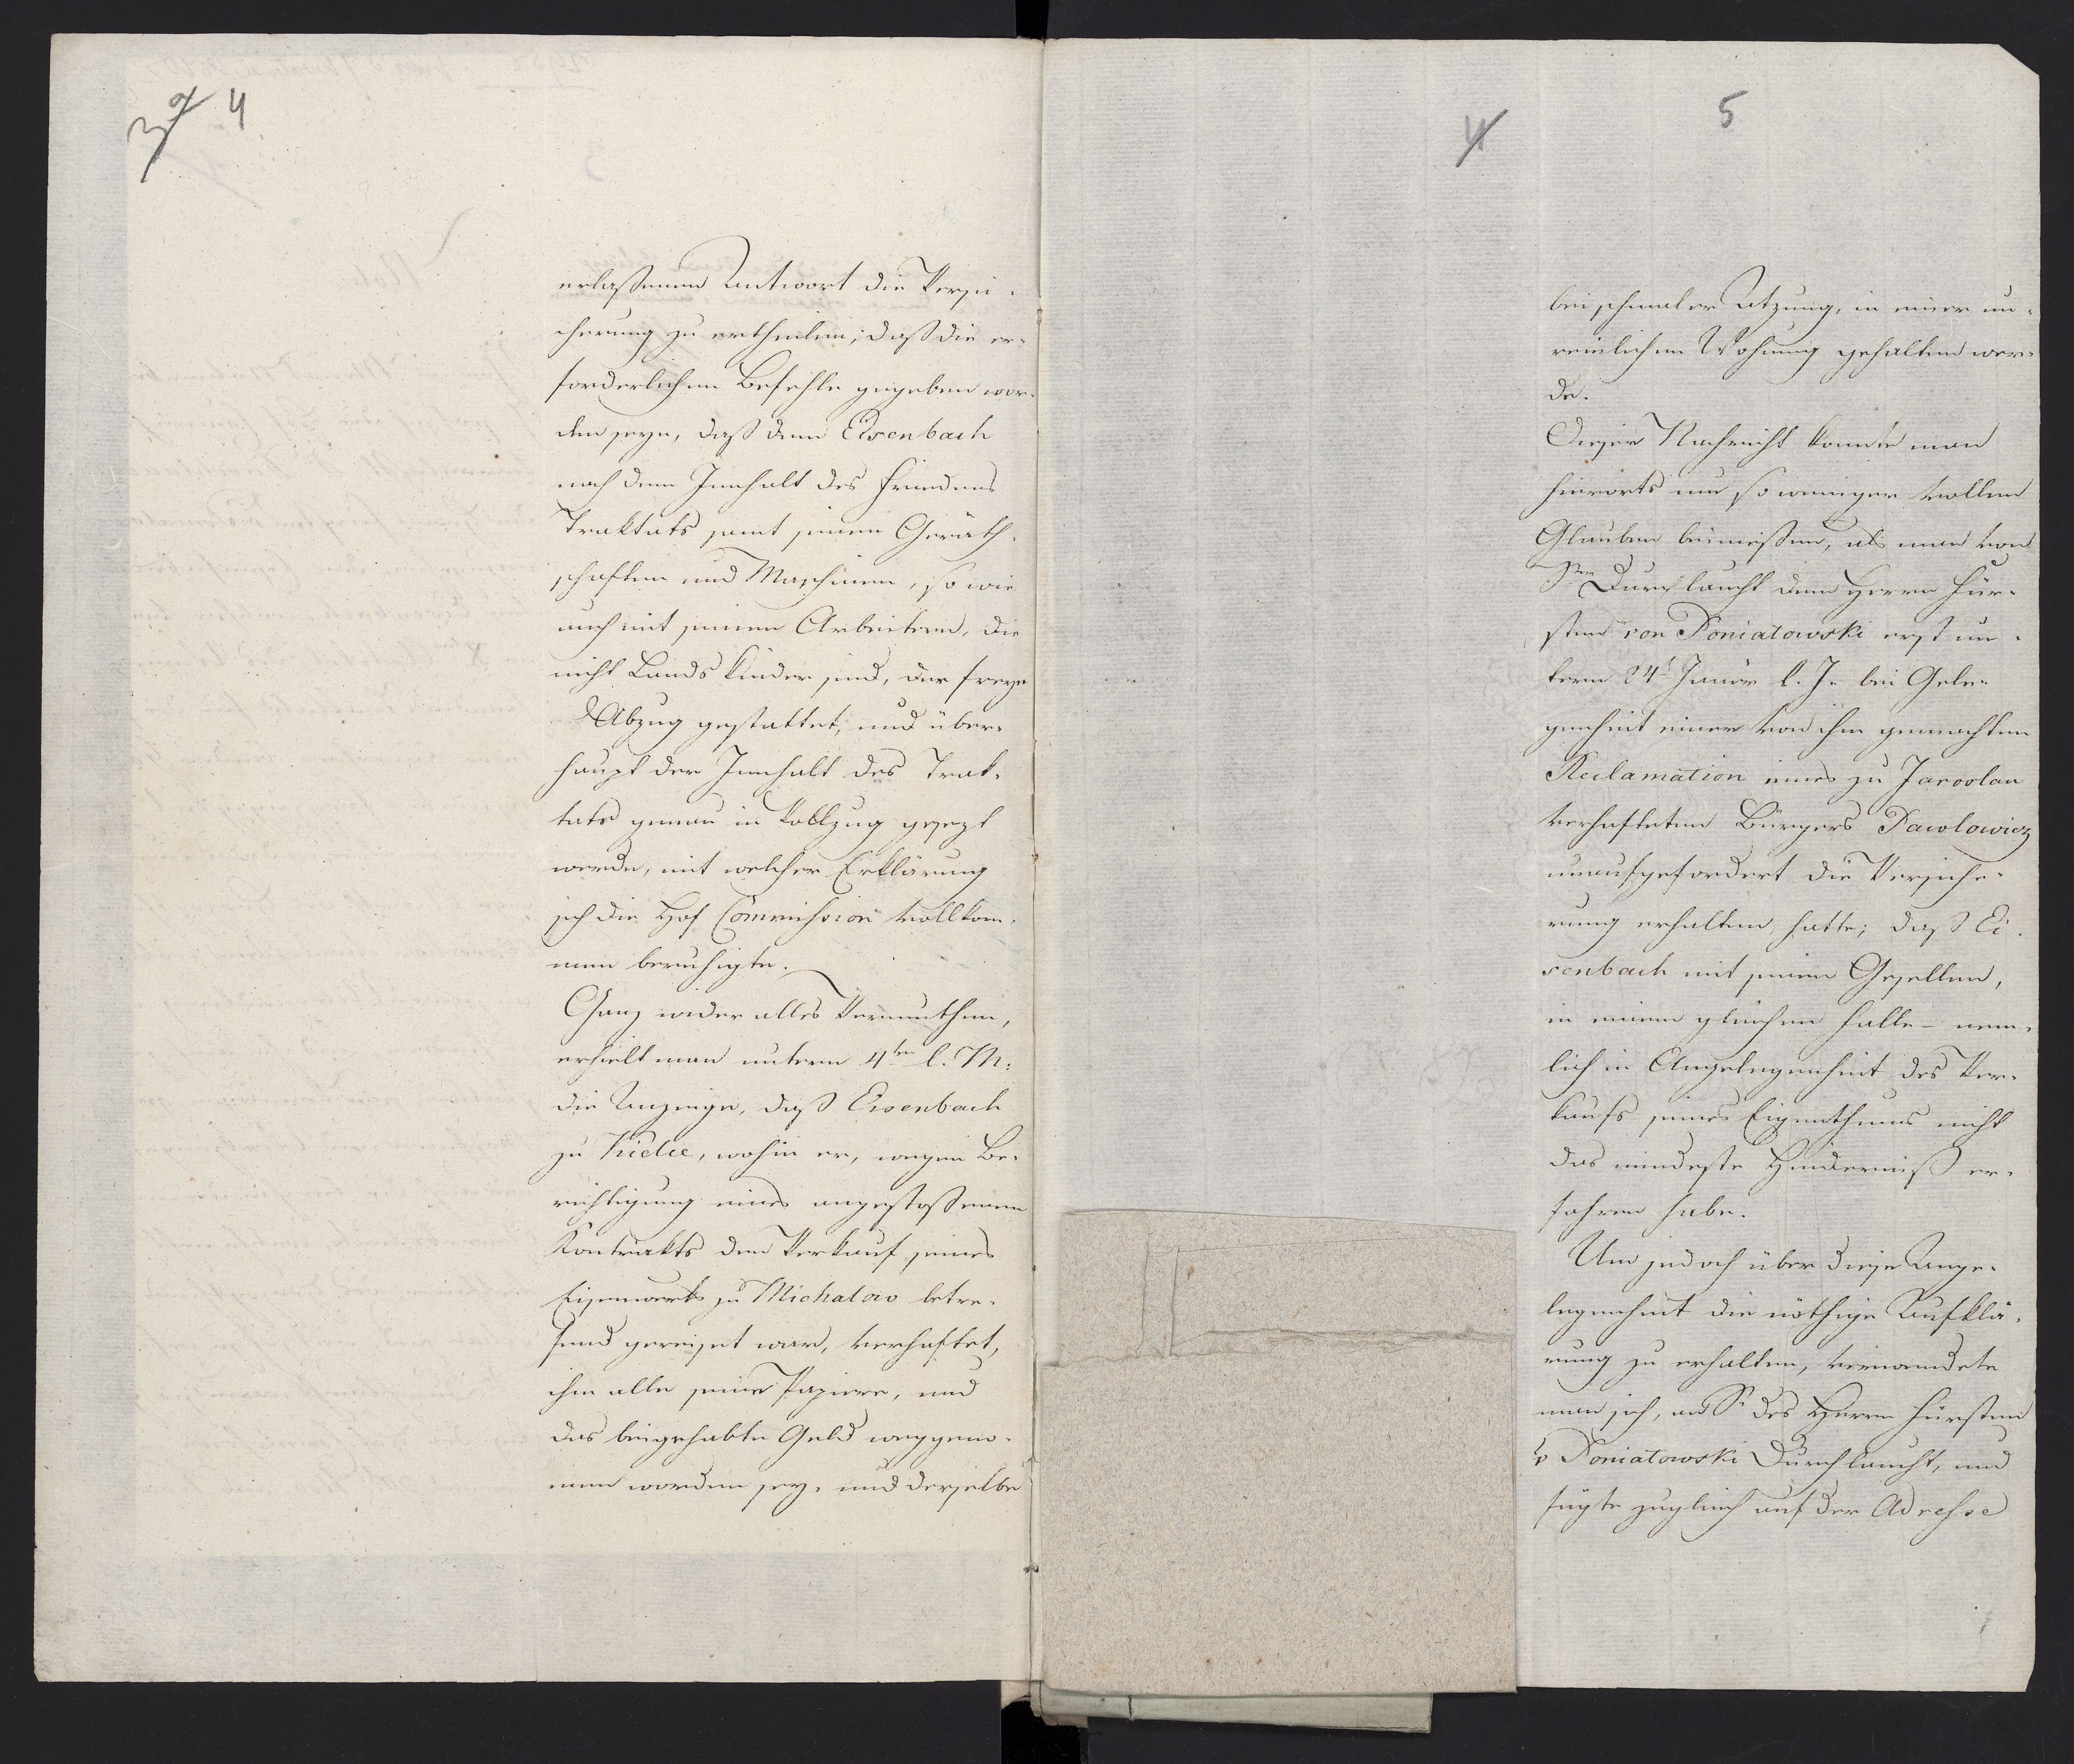 3 4
erlaßenen Antwort die Versi-
cherung zu ertheilen; daß die er-
forderlichen Befehle gegeben wor-
den seyn, daß dem Eisenbach
nach dem Innhalt des Friedens
Traktats samt seinen Geräth-
schaften und Maschinen, so wie
auch mit seinen Arbeitern, die
nicht Landskinder sind, der freye
Abzug gestattet, und über-
haupt der Innhalt des Trak-
tats genau in Vollzug gesezt
werde, mit welcher Erklärung
sich die Hof Commission vollkom-
men beruhigte.
Ganz wider alles Vermuthen,
erhielt man unterm 4ten l. M:
die Anzeige, daß Eisenbach
zu Kielce, wohin er, wegen Be-
richtigung eines angestoßenen
Kontrakts den Verkauf seines
Eisenwerks zu Michalow betre-
fend gereiset war, verhaftet,
ihm alle seine Papiere, und
das beigehabte Geld weggeno-
men worden sey, und derselbe
4 5
bei schmaler Atzung, in einer un-
reinlichen Wohnung gehalten wer-
de.
Dieser Nachricht konnte man
hierorts um so weniger vollen
Glauben beimeßen, als man von
Sr Durchlaucht dem Herrn Für-
sten von Poniatowski erst un-
term 24t Jäner l. J. bei Gele-
genheit einer von ihm gemachten
Reclamation eines zu Jaroslau
verhafteten Bürgers Pawlowicz
unaufgefordert die Versiche-
rung erhalten hatte; daß Ei-
senbach mit seinen Gesellen,
in einem gleichen Falle - nem-
lich in Angelegenheit des Ver-
kaufs seines Eigenthums nicht
das mindeste Hinderniß er-
fahren habe.
Um jedoch über diese Ange-
legenheit die nöthige Aufklä-
rung zu erhalten, verwendete
man sich, an Sr des Herrn Fürsten
v Poniatowski Durchlaucht, und
fügte zugleich auf der Adresse